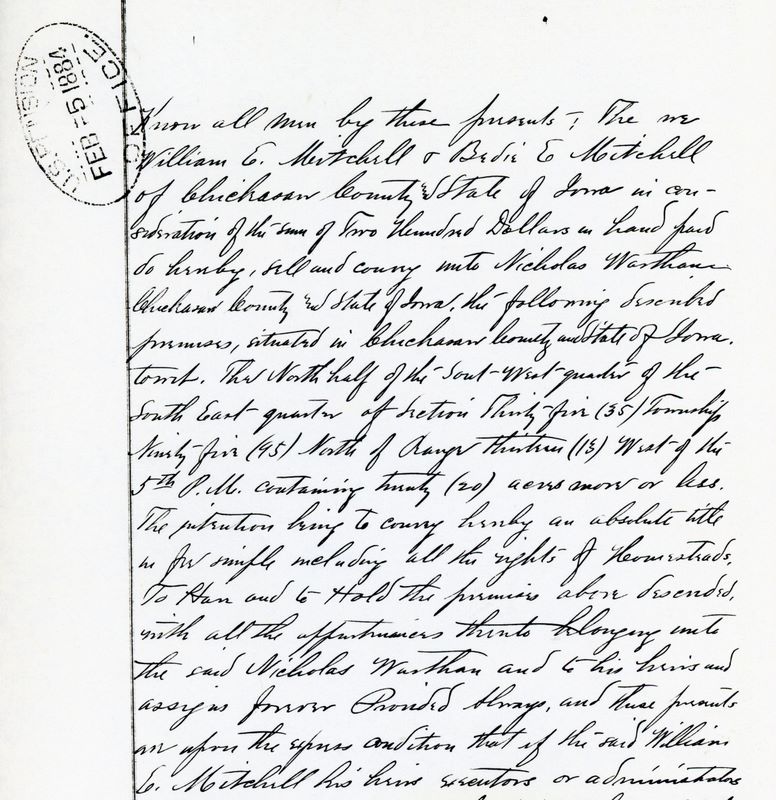 U.S. PENSION OFFICE.
FEB 5 1884
Know all men by these presents -; The we
William E. Mitchell & Bedie E Mitchell
of Chickasaw County and State of Iowa in con-
sideration of the sum of Two Hundred Dollars in hand paid
do hereby, sell and convey unto Nicholas Warthan
Chickasaw County and State of Iowa. the following described
premises, situated in Chickasaw County and State of Iowa.
towit. The North half of the Sout-West quarter of the
South East quarter of Section Thirty five (35) Township
Ninety five (95) North of Range thirteen (13) West of the
5th P.M. containing twenty (20) acres more or less.
The intention being to convey hereby an absolute title
in fee simple including all the rights of Homesteads.
To Have and to Hold the premises above described,
with all the appurtenances thereto belonging unto
the said Nicholas Warthan and to his heirs and
assigns forever Provided Always, and these presents
are upon the express condition that if the said William
E. Mitchell his heirs executors or administrators